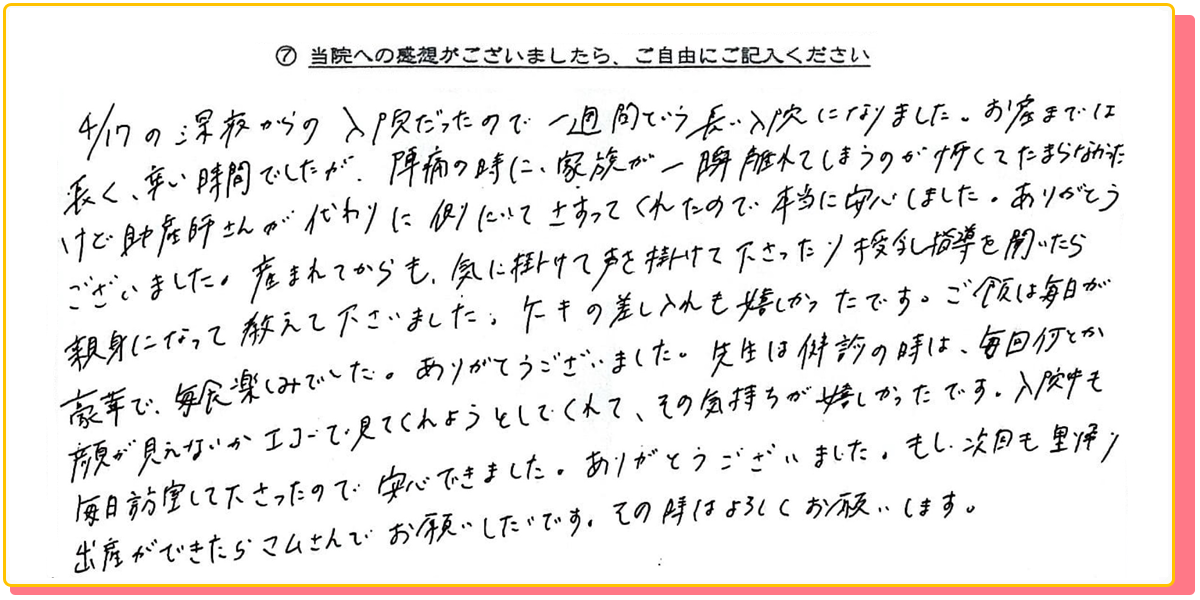 ⑦ 当院への感想がございましたら、ご自由にご記入ください
4/17の深夜からの入院だったので一週間という長い入院になりました。お産までは
長く、辛い時間でしたが、陣痛の時に、家族が一瞬離れてしまうのが怖くてたまらなかった
けど助産師さんが代わりに側にいてさすってくれたので本当に安心しました。ありがとう
ございました。産まれてからも、気に掛けて声を掛けて下さったり授乳指導を聞いたら
親身になって教えて下さいました。ケーキの差し入れも嬉しかったです。ご飯は毎日が
豪華で、毎食楽しみでした。ありがとうございました。先生は健診の時は、毎回何とか
顔が見えないかエコーで見てくれようとしてくれて、その気持ちが嬉しかったです。入院中も
毎日訪室して下さったので安心できました。ありがとうございました。もし次回も里帰り
出産ができたらマムさんでお願いしたいです。その時はよろしくお願いします。